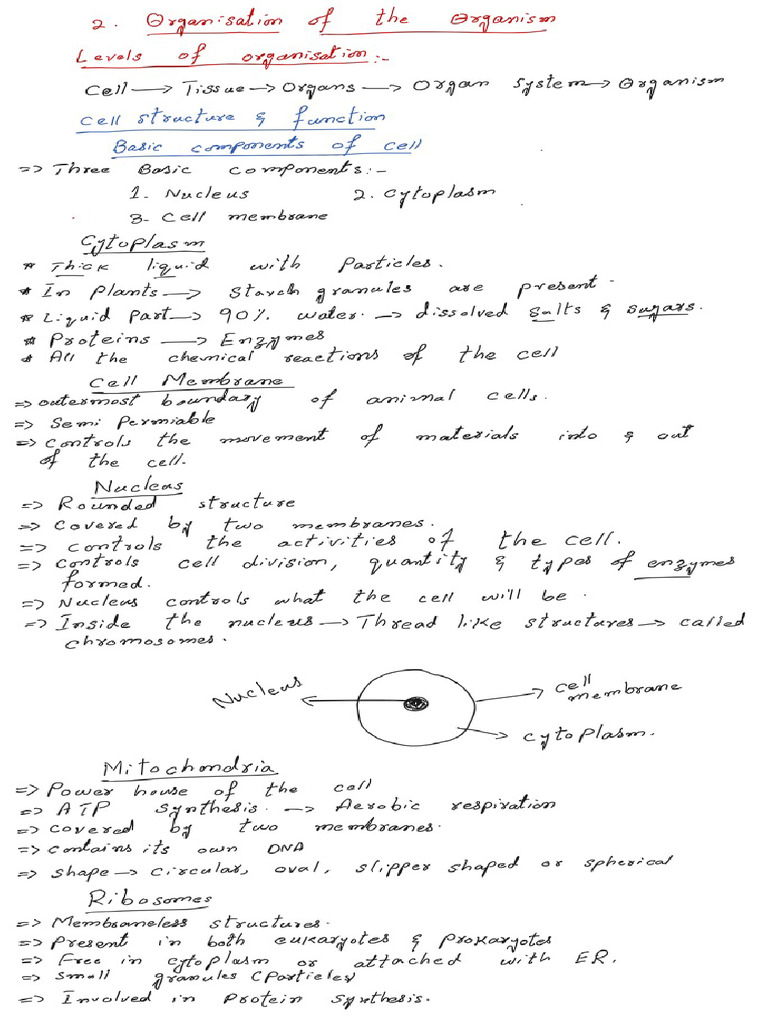 2. Organisation of the Organism
Levels of organisation:-
Cell → Tissue → Organs → Organ System → Organism
Cell structure & function
Basic components of cell
⇒ Three Basic components:-
1. Nucleus 2. Cytoplasm
3. Cell membrane
Cytoplasm
* Thick liquid with Particles.
* In Plants → Starch granules are present.
* Liquid Part → 90% water. → dissolved salts & sugars.
* Proteins → Enzymes
* All the chemical reactions of the cell
Cell Membrane
⇒ outermost boundary of animal cells.
⇒ Semi Permiable
⇒ Controls the movement of materials into & out
of the cell.
Nucleas
⇒ Rounded structure
⇒ Covered by two membrames.
⇒ Controls the activities of the cell.
⇒ Controls cell division, quantity & types of enzymes
formed.
⇒ Nucleus controls what the cell will be.
⇒ Inside the nucleus → Thread like structures → called
chromosomes.
Nucleus
cell
membrane
cytoplasm.
Mitochondria
⇒ Power house of the cell
⇒ ATP synthesis. → Aerobic respiration
⇒ Covered by two membranes.
⇒ Contains its own DNA
⇒ Shape → Circular, oval, slipper shaped or spherical
Ribosomes
⇒ Membrameless structures.
⇒ Present in both eukaryotes & Prokaryotes
⇒ Free in cytoplasm or attached with ER.
⇒ Small granules (Particles)
⇒ Involved in Protein synthesis.